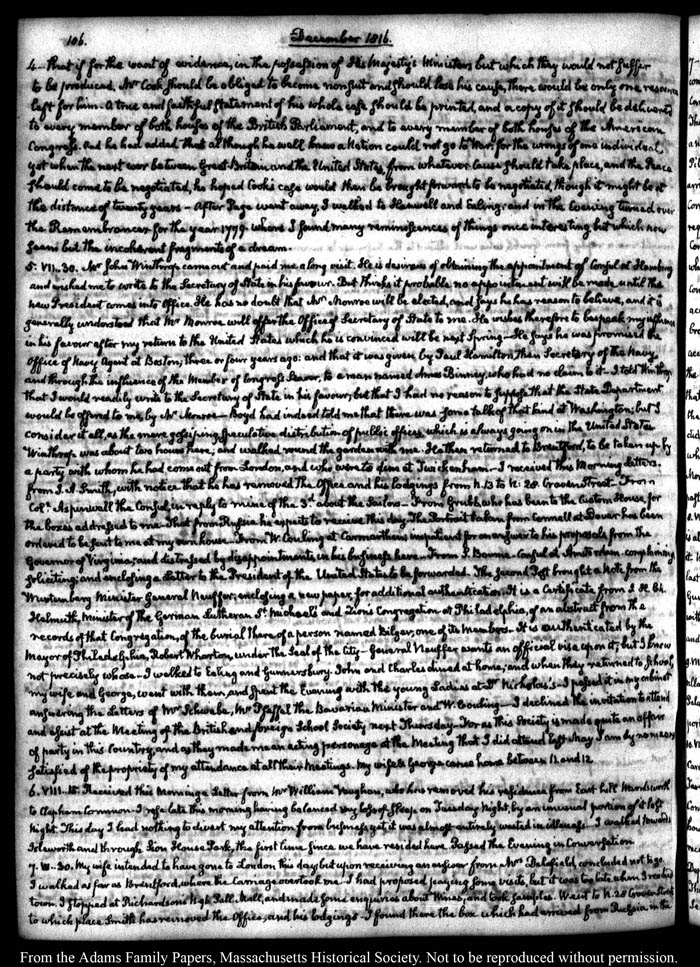 106.
December 1816.
4— that if for the want of evidence, in the possession of His Majesty's Ministers but which they would not suffer
to be produced, Mr Cook should be obliged to become nonsuit and should lose his cause, There would be only one resource
left for him. A true and faithful Statement of his whole case should be printed, and a copy of it should be delivered
to every member of both houses of the British Parliament, and to every member of both houses of the American
Congress. And he had added that although he well knew a Nation could not go to War, for the wrongs of one individual,
yet when the next war between Great-Britain and the United States, from whatever cause should take place, and the Peace
should come to be negotiated, he hoped Cook's case would then be brought forward to be negotiated, though it might be at
the distance of twenty years — After Page went away, I walked to Hanwell and Ealing; and in the Evening turned over
the Remembrancer for the year 1779. where I found many reminiscences of things once interesting but which now
seem but the incoherent fragments of a dream.
5. VII..30. Mr John Winthrop came out and paid me a long visit. He is desirous of obtaining the appointment of Consul at Hamburg
and wished me to write to the Secretary of State in his favour. But thinks it probable no appointment will be made until the
new President comes into Office. He has no doubt that Mr Monroe will be elected, and says he has reason to believe, and it is
generally understood that Mr Monroe will offer the Office of Secretary of State to me. He wishes therefore to bespeak my influence
in his favour after my return to the United States which he is convinced will be next Spring — He says he was promised the
Office of Navy Agent at Boston, three or four years ago: and that it was given by Paul Hamilton, Then Secretary of the Navy,
and through the influence of the Member of Congress Seaver, to a man named Amos Binney, who had no claim to it. I told Winthrop
that I would readily write to the Secretary of State in his favour, but that I had no reason to suppose that the State Department
would be offered to me, by Mr Monroe — Boyd had indeed told me that there was some talk of that kind at Washington; but I
consider it all, as the mere gossiping speculative distribution of public offices, which is always going on in the United States.
Winthrop was about two hours here; and walked round the garden with me. He then returned to Brentford, to be taken up by
a party with whom he had come out from London, and who were to dine at Twickenham — I received this Morning Letters.
from J. A. Smith, with notice that he has removed the Office and his lodgings from N. 13 to N: 28. Craven Street — From
Coll. Aspinwall the Consul, in reply to mine of the 3.d about the Sailors — From Grubb, who has been to the Custom House, for
the boxes addressed to me. That from Russia he expects to receive this day. The Portrait taken from Cornwell at Dover has been
ordered to be sent to me at my own house. From W. Couling at Carmarthen impatient for an answer to his proposals from the
Governor of Virginia; and distressed by disappointments in his business here — From S. Bourne Consul at Amsterdam, complaining
soliciting; and enclosing a Letter to the President of the United States to be forwarded. The second Post brought a Note from the
Wurtemberg Minister General Neuffer; enclosing a new paper, for additional authentication. It is a Certificate from J. H. Ch.
Helmuth, Minister of the German Lutheran St. Michael's and Zion's Congregation at Philadelphia, of an abstract from the
records of that Congregation, of the burial there of a person named Zilger, one of its Members — It is authenticated by the
Mayor of Philadelphia, Robert Wharton, under the Seal of the City — General Neuffer wants an official vise upon it; but I know
not precisely whose — I walked to Ealing and Gunnersbury. John and Charles dined at home; and when they returned to School,
my wife and George, went with them, and spent the Evening with the young Ladies at Dr Nicholas's — I passed it in my cabinet
answering the Letters of Mr Schwabe, Mr Pfeffel the Bavarian Minister and W. Couling — I declined the invitation to attend
and assist at the Meeting of the British and foreign School Society next Thursday — For as this Society is made quite an affair
of party in this Country, and as they made me an acting personage at the Meeting that I did attend last May, I am by no means
satisfied of the propriety of my attendance at all their Meetings. My wife & George came home between 11. and 12.
6. VIII..15. Received this Morning a Letter from Mr William Vaughan, who has removed his residence from East hill Wandsworth
to Clapham Common — I rose late this morning having balanced my loss of sleep on Tuesday Night, by an unusual portion of it last
Night. This day I had nothing to divert my attention from business, yet it was almost entirely wasted in idleness — I walked towards
Isleworth and through Sion House Park, the first time since we have resided here. Passed the Evening in Conversation
7. VI..30. My wife intended to have gone to London this day but upon receiving an answer from Mrs Delafield, concluded not to go.
I walked as far as Brentford, where the Carriage overtook me — I had proposed paying some visits, but it was too late when I reached
town. I stopped at Richardson's N 96. Pall Mall, and made some enquiries about Wines, and took samples. Went to N. 28 Craven Street
to which place Smith has removed the Office, and his lodgings — I found there the box which had arrived from Russia, in the
From the Adams Family Papers, Massachusetts Historical Society. Not to be reproduced without permission.